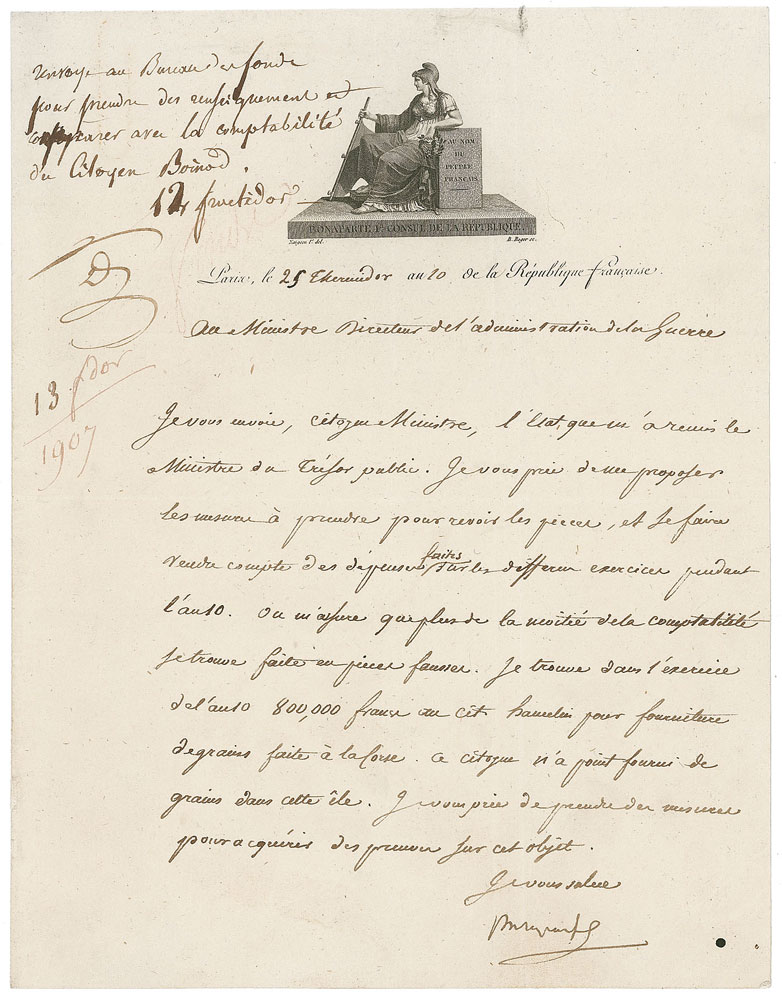 renvoyé au Bureau des fonds
pour prendre des renseignement et
comparer avec la comptabilité
du Citoyen Boinod.
12 fructidor
AU NOM
DU
PEUPLE
FRANÇAIS
BONAPARTE 1er CONSUL DE LA REPUBLIQUE.
Naigeon f. del.
B. Roger sc.
Paris, le 25 Thermidor an 10 de la République française.
Au Ministre Directeur de l'administration de la Guerre
13 fdor
1907
Je vous envoie, citoyen Ministre, l'Etat que m'a remis le
Ministre du Trésor public. Je vous prie de me proposer
les mesures à prendre pour revoir les pièces, et se faire
rendre compte des dépenses faites sur les differens exercices pendant
l'an 10. On m'assure que plus de la moitié de la comptabilité
se trouve faite en pièces fausses. Je trouve dans l'exercice
de l'an 10 800,000 francs au cit. hamelin pour fourniture
de grains faite à la Corse. Ce citoyen n'a point fourni de
grains dans cette île. Je vous prie de prendre des mesures
pour acquérir des preuves sur cet objet.
Je vous salue